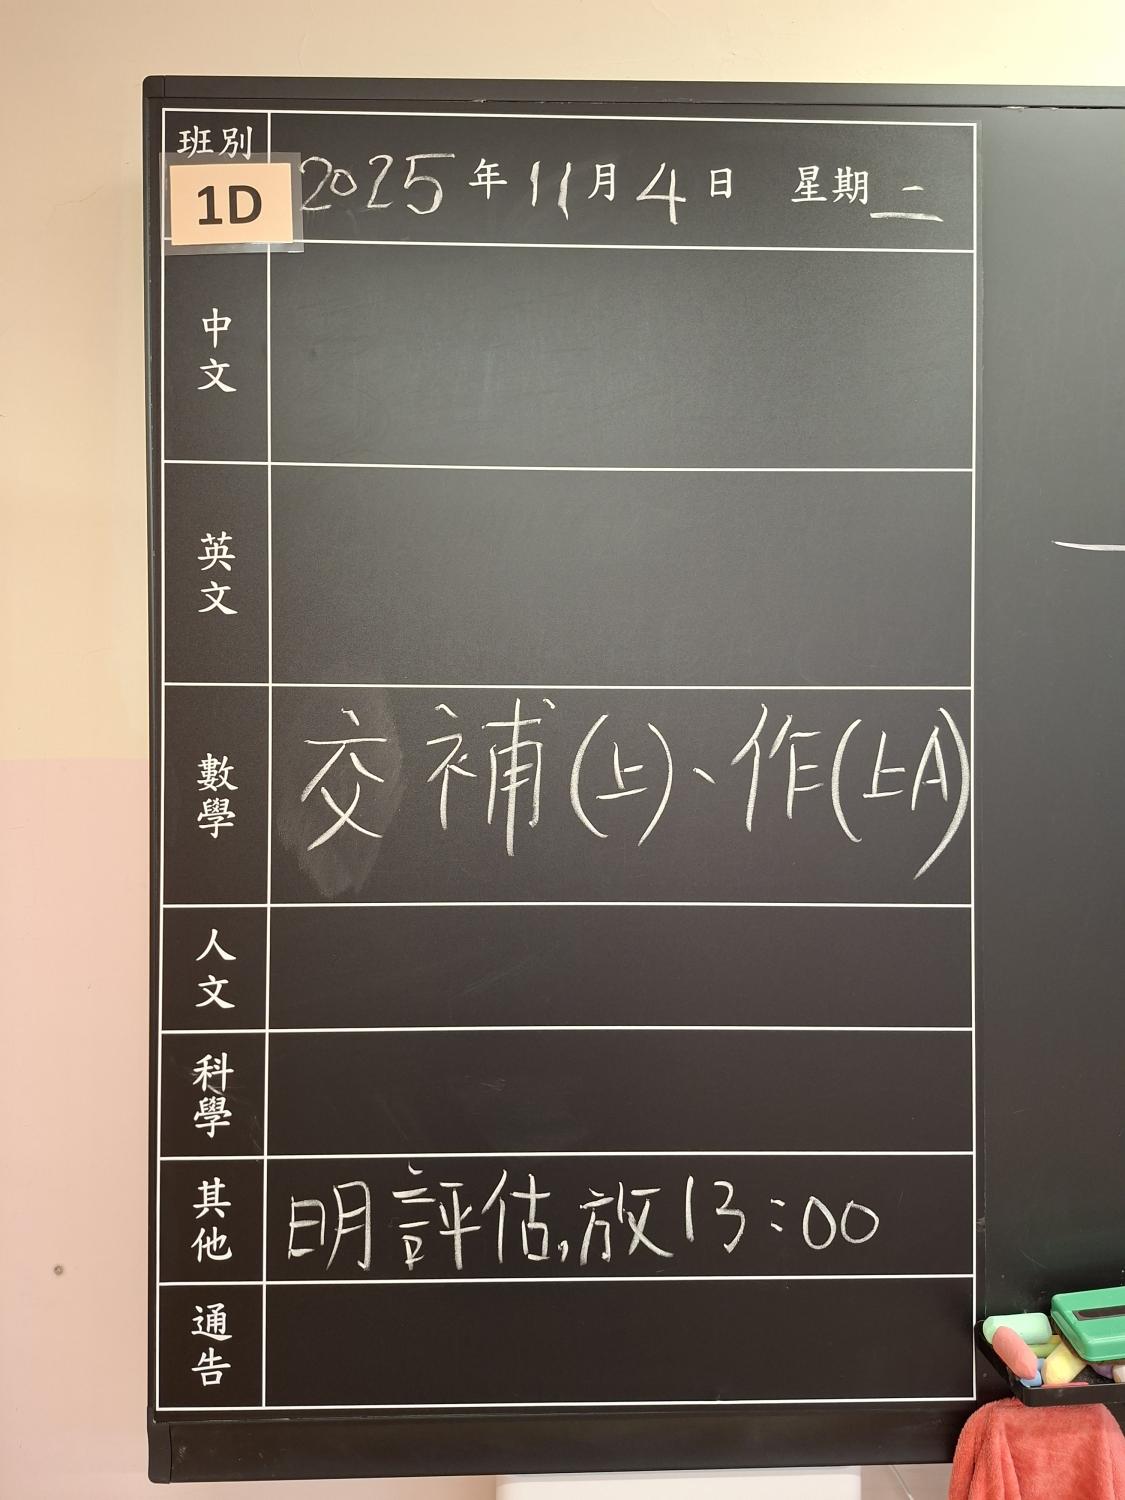 班別
1D
2025年11月4日 星期二
中文
英文
數學
交補(上)、作(上A)
人文
科學
其他
明評估,放13:00
通告